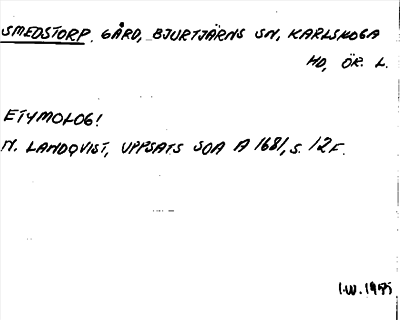 SMEDSTORP. GÅRD, BJURTJÄRNS SN, KARLSKOGA
HD, ÖR. L.
ETYMOLOG!
N. LANDQVIST, UPPSATS SOA A 1681, S. 12 F.
I.W. 1975